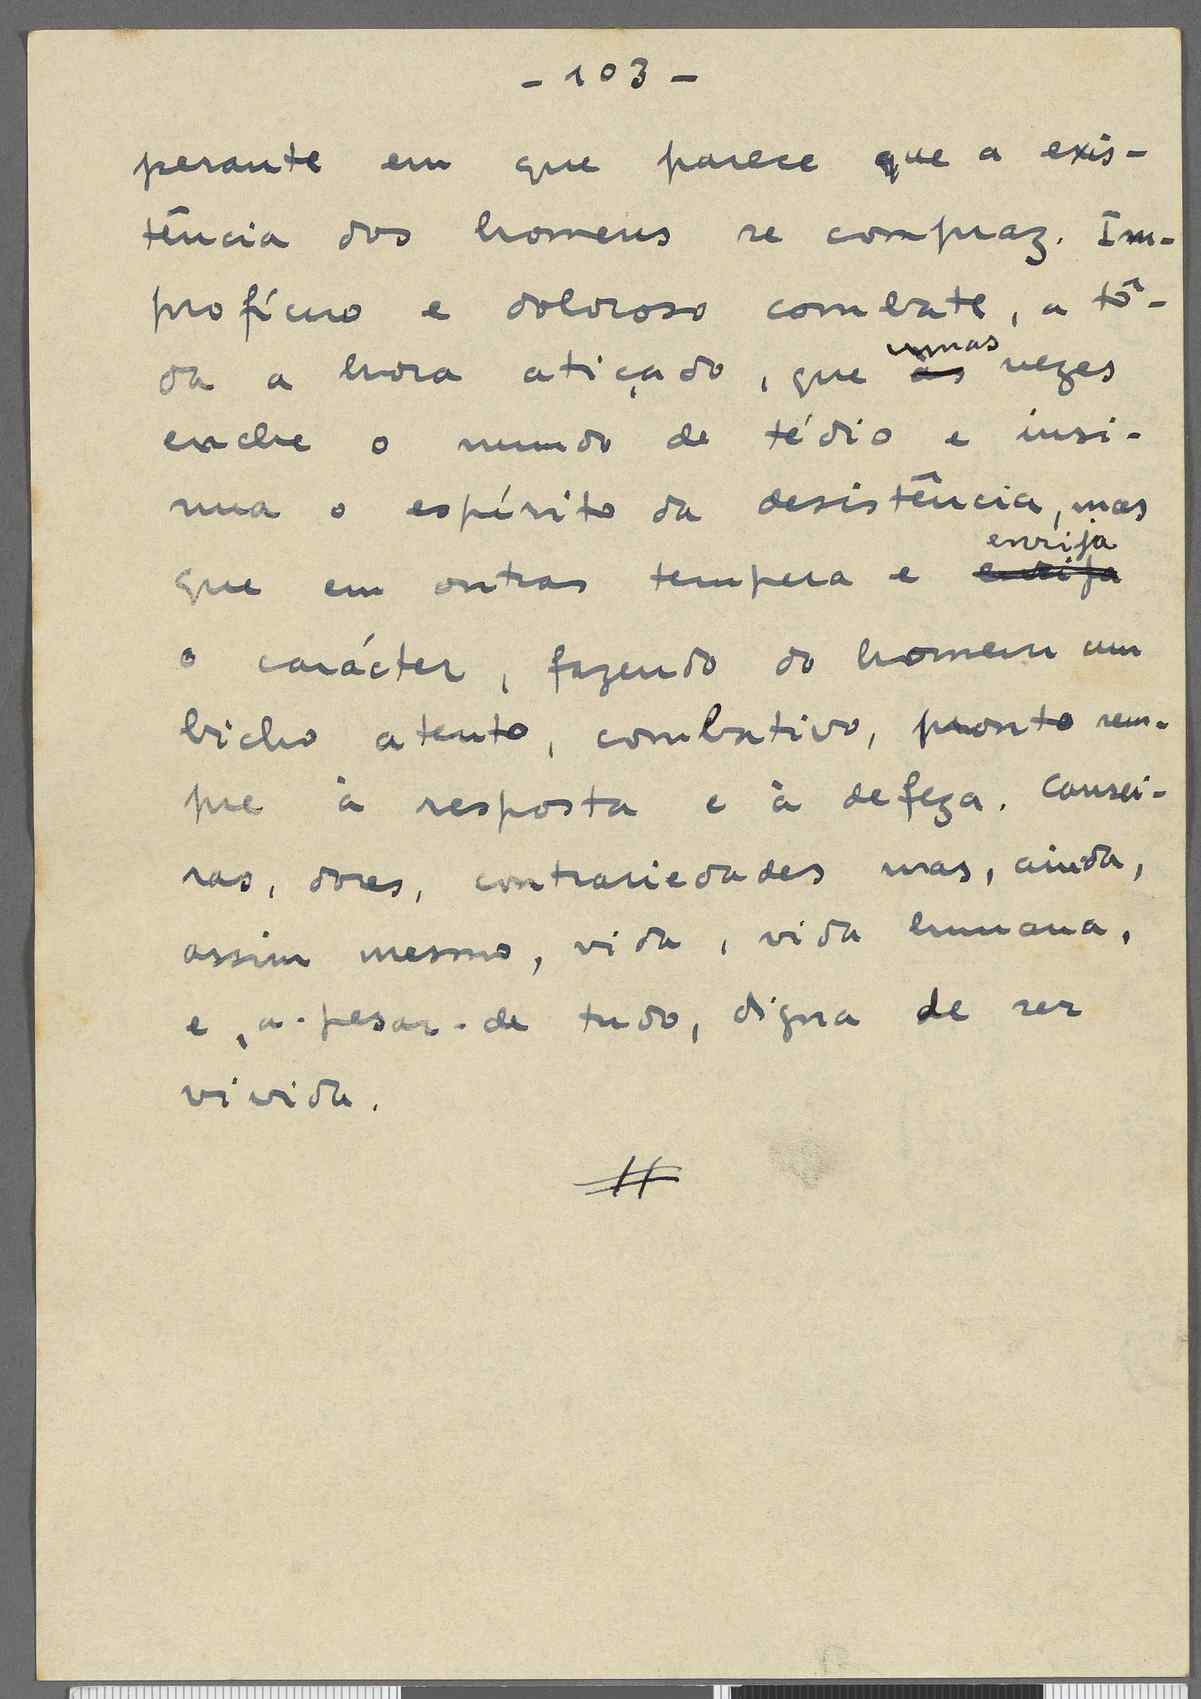 - 103 -
perante em que parece que a exis-
tência dos homens se compraz. Im-
profícuo e doloroso combate, a tô-
da a hora atiçado, que umas vezes
enche o mundo de tédio e insi-
nua o espírito da desistência, mas
que em outras tempera e enrija
o carácter, fazendo do homem um
bicho atento, combativo, pronto sem-
pre à resposta e à defeza. Cansei-
ras, dores, contrariedades mas, ainda,
assim mesmo, vida, vida humana,
e, a-pesar-de tudo, digna de ser
vivida.